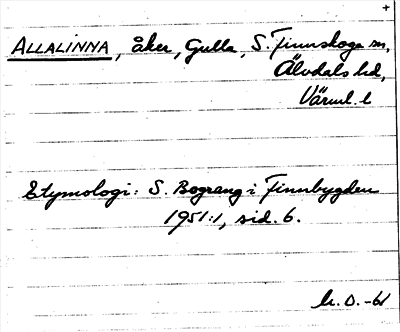 +
ALLALINNA, åker, Gulla, S. Finnskoga sn,
Älvdals hd,
Värml. l
Etymologi: S. Bograng i Finnbygden
1951:1, sid. 6.
M.O. -61